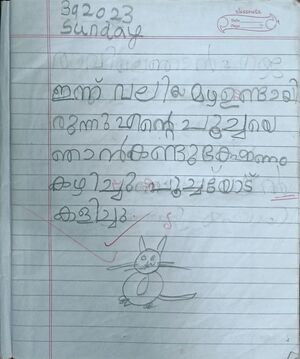 classmate
Date
Page
3 9 2023
Sunday
ഇന്ന് വലിയ മഴ ഉണ്ടായി
രുന്നു എന്റെ പൂച്ചയെ
ഞാൻ കണ്ടു ഭക്ഷണം
കഴിച്ചു പൂച്ചയോട്
കളിച്ചു